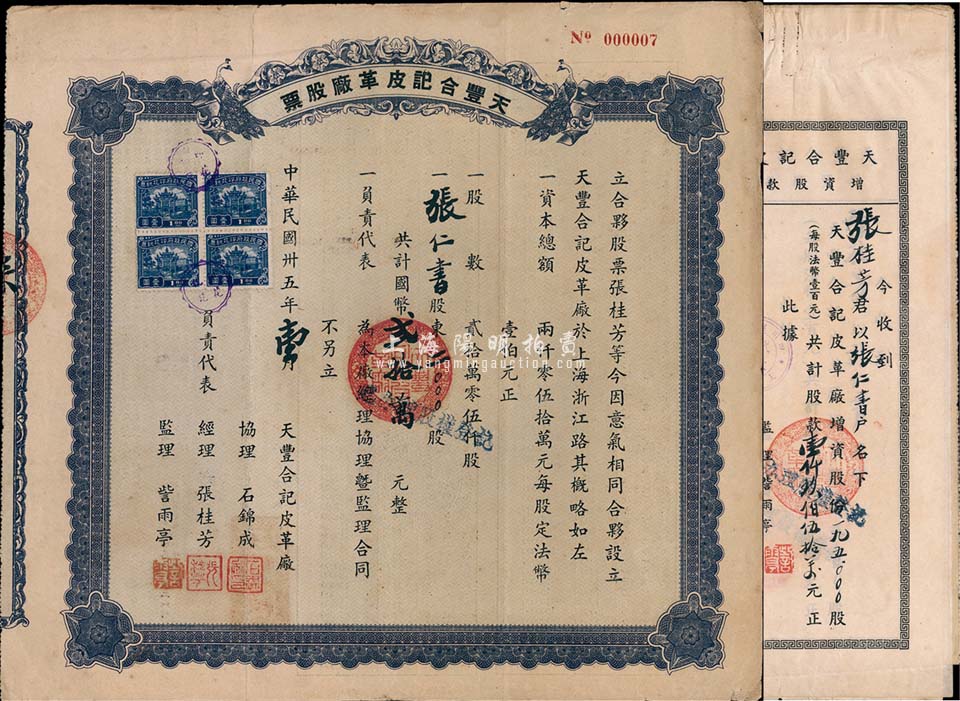 № 000007
天豐合記皮革廠股票
立合夥股票張桂芳等今因意氣相同合夥設立
天豐合記皮革廠於上海浙江路其概略如左
一資本總額 兩仟零伍拾萬元每股定法幣
壹佰元正
一股數 貳拾萬零伍仟股
一張仁書股東2000股
共計國幣貳拾萬元整
一負責代表 為本廠經理協理暨監理合同
不另立
中華民國卅五年
天豐合記皮革廠
負責代表
協理 石錦成
經理 張桂芳
監理 訾雨亭
天豐合記
增資股款
今收到
張桂芳君以張仁書户名下
天豐合記皮革廠增資股份一九五000股
(每股法幣壹百元)共計股款壹仟玖佰伍拾萬元正
此據
監理訾雨亭
上海陽明拍賣
www.ymingauction.com